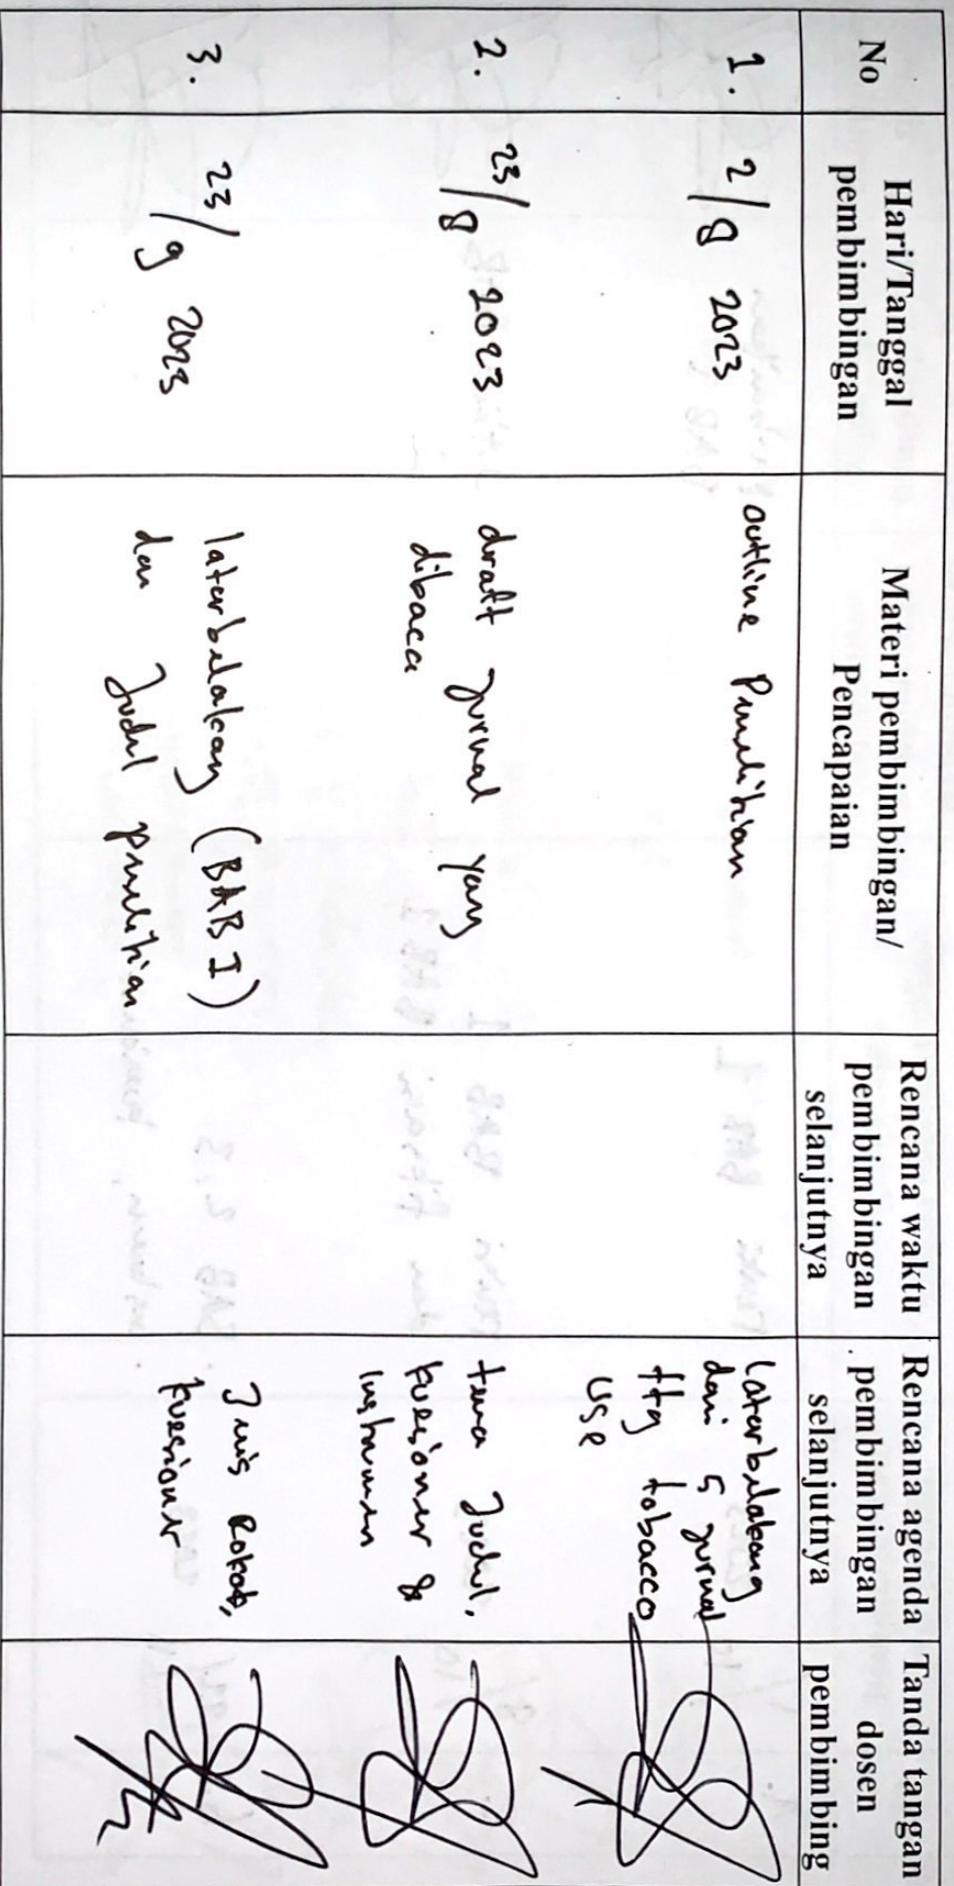 No
Hari/Tanggal
pembimbingan
Materi pembimbingan/
Pencapaian
Rencana waktu
pembimbingan
selanjutnya
Rencana agenda
pembimbingan
selanjutnya
Tanda tangan
dosen
pembimbing
1.
2/8 2023
outline Penelitian
Latarbelakang
dari 5 jurnal
ttg tobacco
use
2.
23/8 2023
draft jurnal yang
dibaca
tema Judul,
kuesioner &
Instrumen
3.
23/9 2023
latarbelakang (BAB I)
dan Judul penelitian
Jenis Rokok,
kuesioner